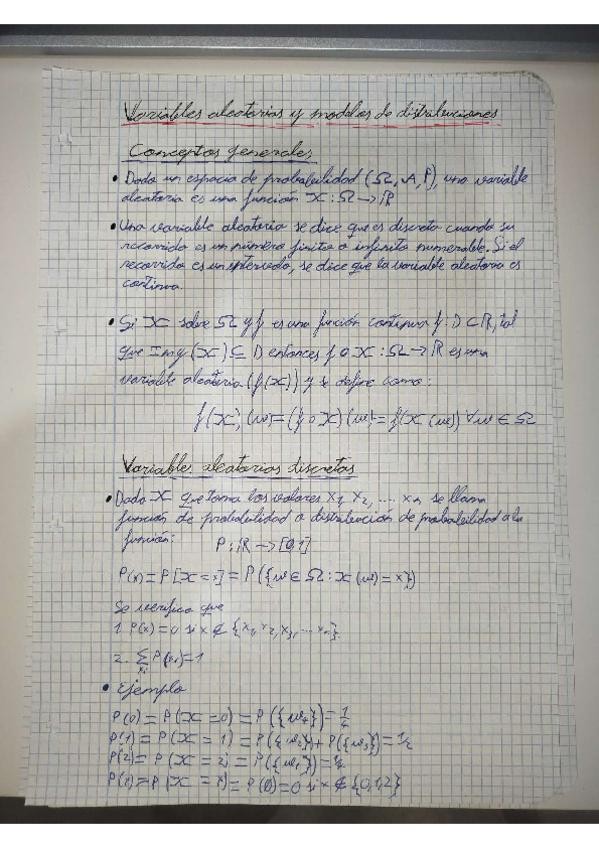 Variables aleatorias y modelos de distribuciones
Conceptos generales
• Dado un espacio de probabilidad (Ω, A, P), una variable
aleatoria es una función X : Ω → ℝ
• Una variable aleatoria se dice que es discreta cuando su
recorrido es un número finito o infinito numerable. Si el
recorrido es un intervalo, se dice que la variable aleatoria es
continua.
• Si X sobre Ω y f es una función continua f: D ⊂ ℝ, tal
que Img (X) ⊆ D entonces f o X : Ω → ℝ es una
variable aleatoria (f(X)) y se define como:
f(X)(w) = (f o X)(w) = f(X(w)) ∀w ∈ Ω
Variables aleatorias discretas
• Dado X que toma los valores x1, x2, .... xn se llama
función de probabilidad o distribución de probabilidad a la
función: P : ℝ → [0,1]
P(x) = P[X = x] = P({w ∈ Ω : X(w) = x})
Se verifica que
1. P(x) = 0 si x ∉ {x1, x2, x3, ... xn}
2. Σxi P(xi) = 1
• Ejemplo
P(0) = P(X = 0) = P({w4}) = 1/4
P(1) = P(X = 1) = P({w2}) + P({w3}) = 1/2
P(2) = P(X = 2) = P({w1}) = 1/4
P(x) = P(X = x) = P(∅) = 0 si x ∉ {0,1,2}